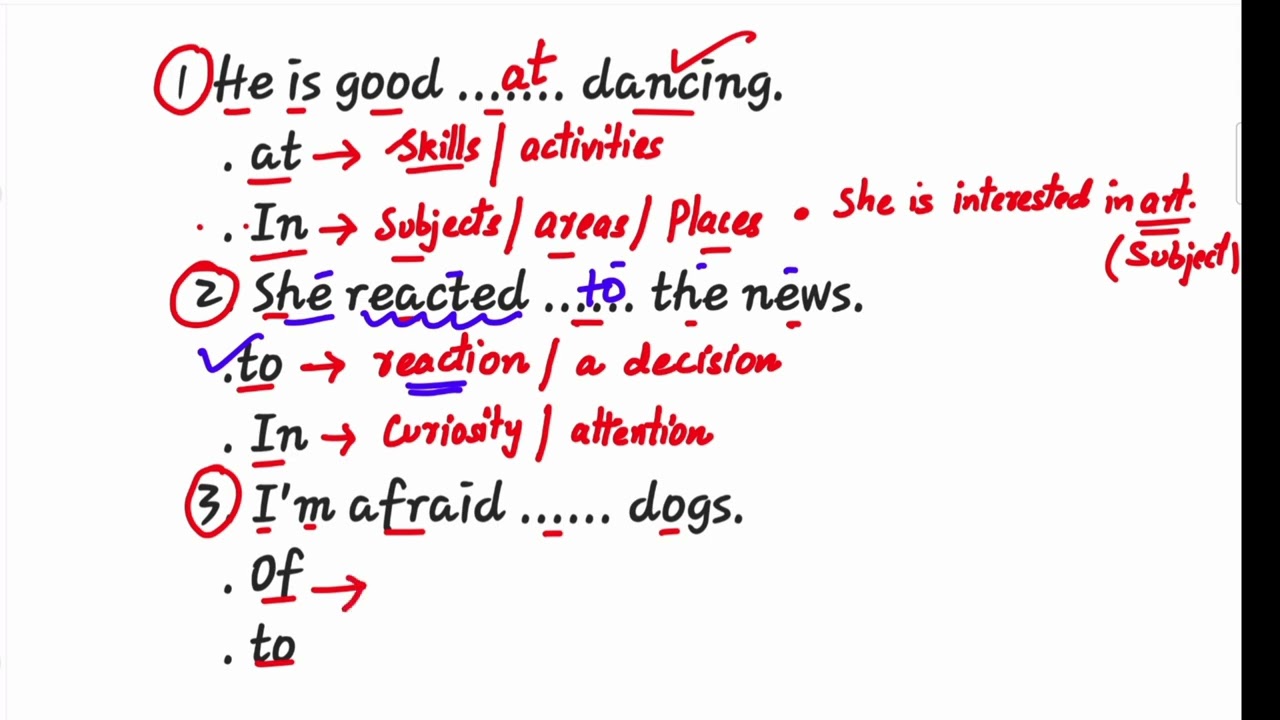 1 He is good ...at.... dancing.
. at → Skills / activities
. In → Subjects / areas / Places • She is interested in art.
(Subject)
2 She reacted ...to... the news.
. to → reaction / a decision
. In → Curiosity / attention
3 I'm afraid ...... dogs.
. Of →
. to